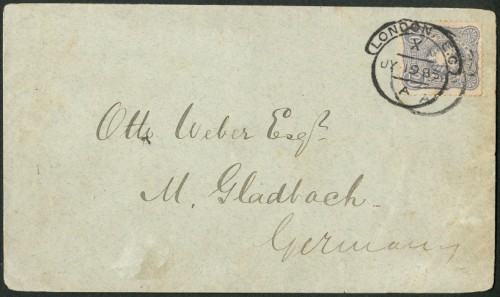 LONDON. E.C
X
JY 19 85
A A
Otto Weber Esqr.
M. Gladbach
Germany